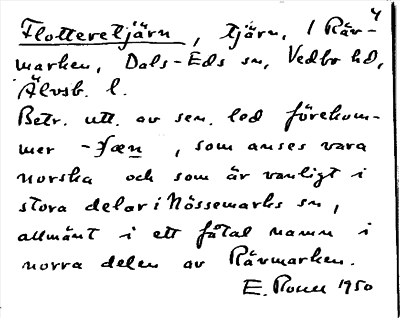 4
Flotteretjärn, tjärn, / Räv-
marken, Dals-Eds sn, Vedbo hd,
Älvsb. l.
Betr. utt. av sen. led förekom-
mer -ɟæn, som anses vara
norska och som är vanligt i
stora delar i Nössemarks sn,
allmänt i ett fåtal namn i
norra delen av Rävmarken.
E. Rosell 1950